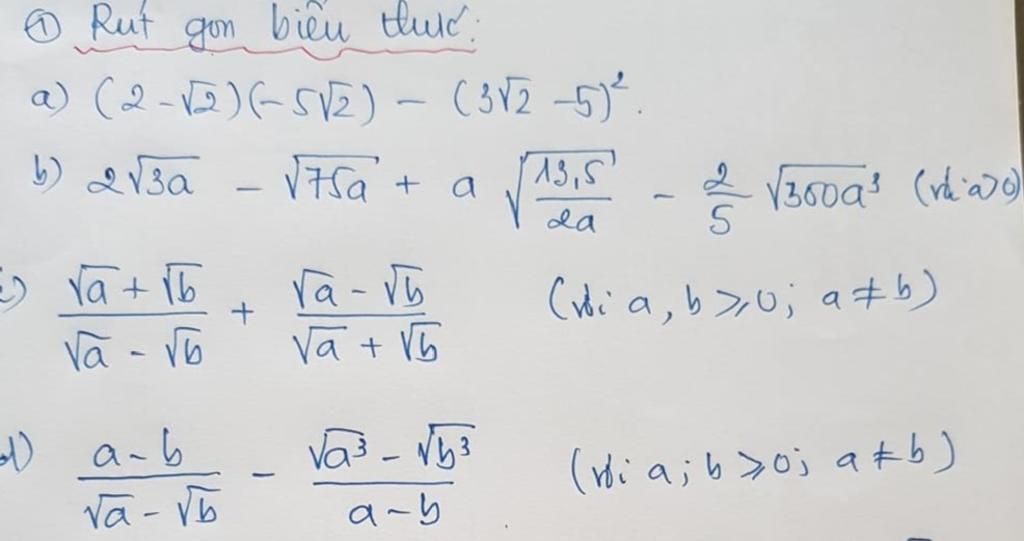 ① Rút gọn biểu thức:
a) (2 - √2)(-5√2) - (3√2 - 5)².
b) 2√3a - √75a + a √(13,5/2a) - 2/5 √300a³ (với a>0)
c) (√a + √b)/(√a - √b) + (√a - √b)/(√a + √b) (với a, b ⩾ 0; a ≠ b)
d) (a - b)/(√a - √b) - (√a³ - √b³)/(a - b) (với a; b ⩾ 0; a ≠ b)